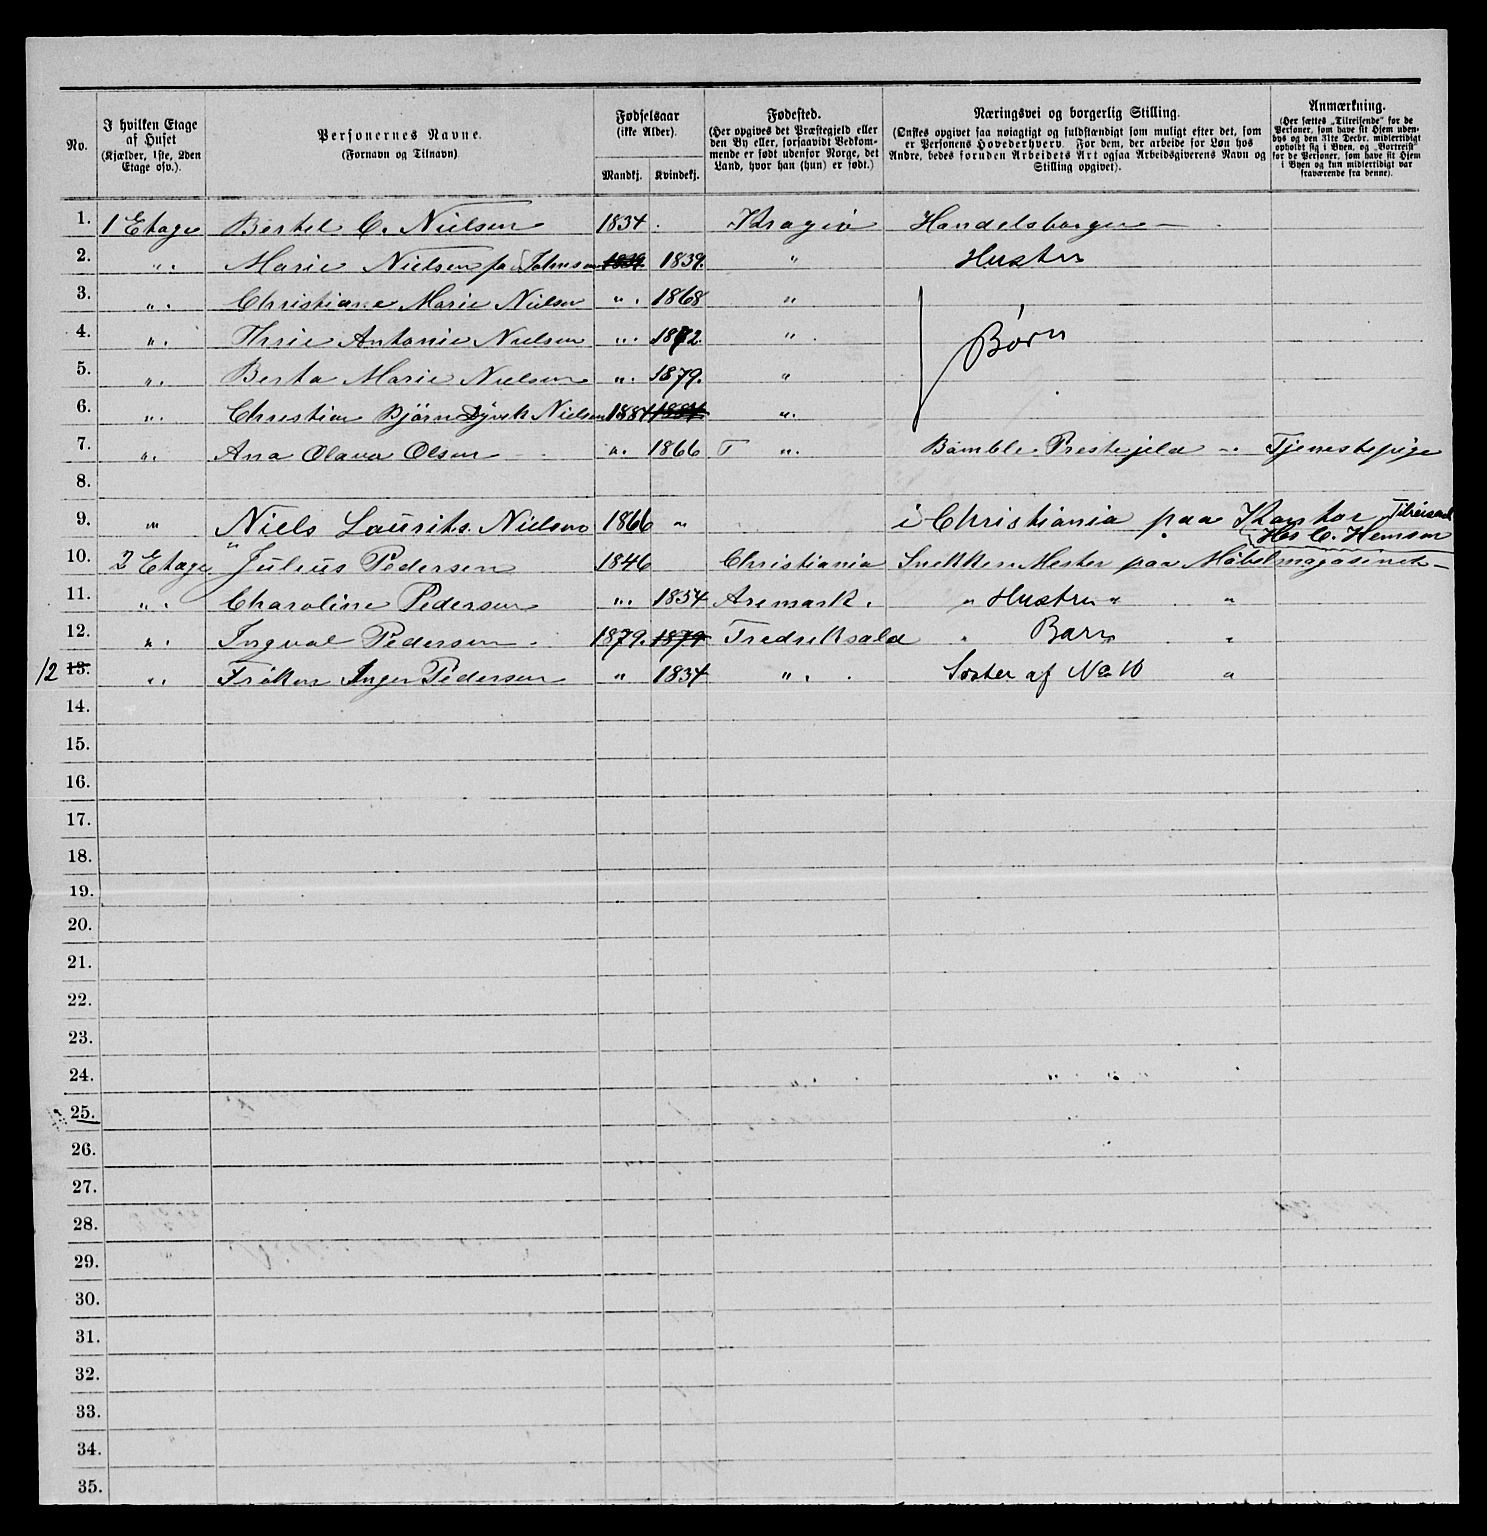 No.
I hvilken Etage af Huset (Kjælder, 1ste, 2den Etage osv.).
Personernes Navne.
(Fornavn og Tilnavn)
Fødselsaar
(ikke Alder).
Mandkj. Kvindekj.
Fødested.
(Her opgives det Præstegjeld eller den By eller, forsaavidt Vedkommende er født udenfor Norge, det Land, hvor han (hun) er født.)
Næringsvei og borgerlig Stilling.
(Ønskes opgivet saa nøiagtigt og fuldstændigt som muligt efter det, som er Personens Hovederhverv. For dem, der arbeide for Løn hos Andre, bedes foruden Arbeidets Art ogsaa Arbeidsgiverens Navn og Stilling opgivet).
Anmærkning.
(Her sættes „Tilreisende" for de Personer, som have sit Hjem udenbys og den 31te Decbr. midlertidigt opholdt sig i Byen, og „Bortreist" for de Personer, som have sit Hjem i Byen og kun midlertidigt var fraværende fra denne).
1. 1 Etage Bertel C. Nielsen 1834 . Kragerø Handelsborger —
2. „ . Marie Nielsen f. Johnsen 1839 1839. „ Hustru
3. „ . Christiane Marie Nielsen „ . 1868 „
4. „ . Antonie Nielsen „ . 1872. „ . Børn
5. „ . Berta Marie Nielsen „ . 1879. „
6. „ . Christian Bjørn Nielsen 1884 1884 „ .
7. „ . Ana Olava Olsen „ . 1866 T „ . Bamble Prestejeld „ Tjenestepige
8.
9. „ Niels Laurits Nielsen 1866 „ i Christiania paa Kontor Tilreisend
Hos C. Hemsen
10. 2 Etage Julius Pedersen 1846 Christiania Snekker Mester paa Møbelmagasinet —
11. „ . Charoline Pedersen „ . 1854 Aremark. „ Hustru „ „
12. „ . Ingval Pedersen . 1879. 1879 Fredriksald „ Barn „
12 13. „ . Frøken Inger Pedersen „ 1834 „ . Søster af No 10 „
14.
15.
16.
17.
18.
19.
20.
21.
22.
23.
24.
25.
26.
27.
28.
29.
30.
31.
32.
33.
34.
35.